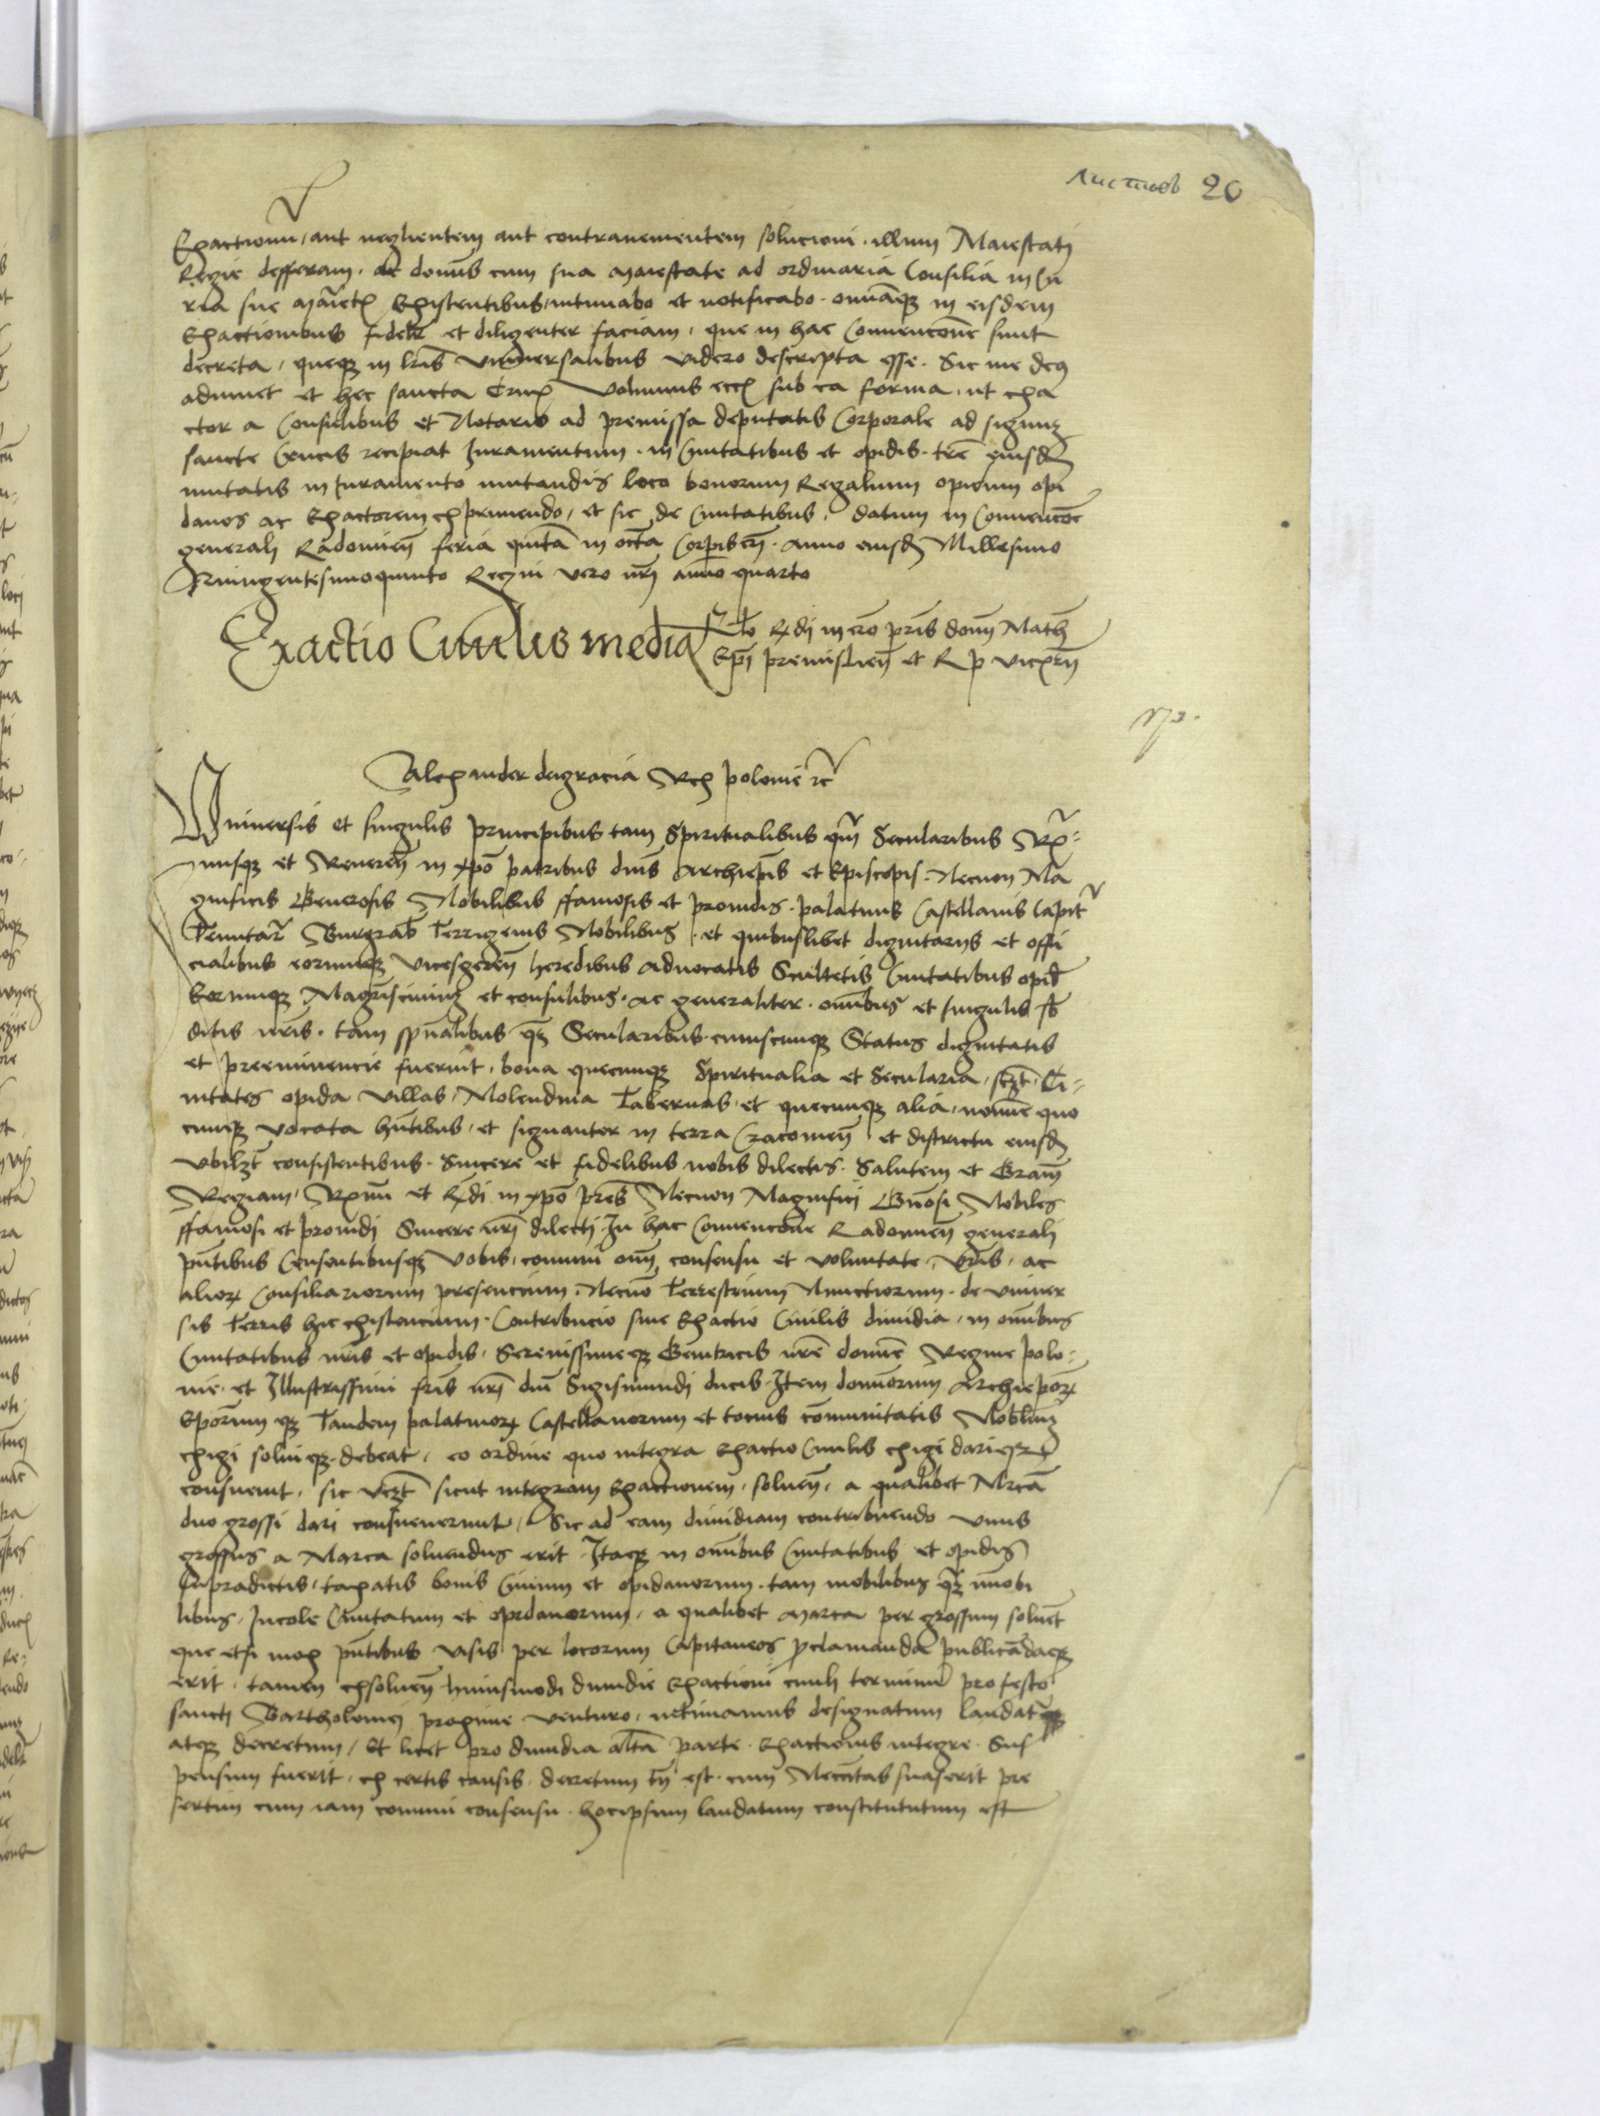 листовъ 20
Exactionu, aut neglientem aut contravenientem solucioni. illum Maiestati
Regie defferam. ac domīs cum sua maiestate ad ordinaria Consilia in Cu
ria sue māietꝭ Existentibus, intimabo et notificabo. omniaqȝ in eisdem
Exactionibus fidelr et diligenter faciam, que in hac Convencōne sunt
decreta, queqȝ in lrīs Universalibus videro descripta esse. Sic me deꝰ
adiuvet et hec sancta Crux Volumus eciā sub ea forma. ut exa
ctor a Consulibus et Notariis ad premissa deputatis Corporale ad signuȝ
sancte Crucis recipiat Juramentum. in Civitatibus et opidis. tr̄e eiusdē
mutatis in Juramento mutandis loco bonorum Regalium opidum opi
danos ac Exactorem exprimendo, et sic de Civitatibus. Datum in Convencōe
generali Radomien̄ feria quinta in octa Corporis cri. Anno eiusdē Millesimo
Quingentesimoquinto Regni vero nrī anno quarto
Exactio Civilis media
Rlo Rdi in cro prīs domī Math
Epī premislien̄ et R p vicecn̄
172.
Alexander dei gracia Rex polonie ꝛc
Universis et singulis principibus tam Spiritualibus qm̄ Secularibus Rꝭ-
nusqȝ et Reveren̄ in xpō patribus dnīs Archiepīs et Episcopis. Necnon Ma
gnificis Generosis Nobilibus ffamosis et providis. palatinis Castellanis Capit
Tenutar Burgrab Terrigenis Nobilibus. et quibuslibet dignitariis et offi
cialibus eorumqȝ vicesgeren̄ heredibus advocatis Scultetis Civitatibus opid
Eorumqȝ Magriscivium et consulibus. ac generaliter. omībus et singulis sb
ditis nrīs. tam spualibus qȝ Secularibus. cuiuscunqȝ Status dignitatis
et preeminencie fuerint, bona quecunqȝ Spiritualia et Secularia, sczt. Ci-
vitates opida villas, Molendina Tabernas, et quecunqȝ alia, nomīe quo
cunqȝ vocata hn̄tibus, et signanter in terra Cracovien̄ et districtu eiusdē
Ubilzt consistentibus. Sincere et fidelibus nobis dilectis. Salutem et Gram̄
Regiam, Rxmi et Rdi in xpō prēs Necnon Magnifici Gn̄osi Nobiles
ffamosi et providi Sincere nrī dilecti. In hac Convencōne Radomien̄ generali
pn̄tibus Censentibusqȝ vobis, comuni om̄ consensu et voluntate, vrīs, ac
alioꝝ Consiliariorum presencium. Necnō Terrestrium Nunctiorum. de Univer
sis Terris hic existencium. Contribucio sive Exactio Civilis dimidia, in omībus
Civitatibus nrīs et opidis, Serenissimeqȝ Genitricis nrē domīe Regine polo-
nie. et Illustrissimi frīs nrī dnī Sigismundi ducis. Item domīorum Archiepōꝝ
Epōrum qȝ Tandem palatinoꝝ Castellanorum et tocius cōmunitatis Nobiliuȝ
exigi solviqȝ debeat, eo ordine quo integra Exactio Civilis exigi dariqȝ
consuevit. sic vczt sicut integram Exactionem, solven̄. a qualibet Mrcā
duo grossi dari consueverunt, Sic ad eam dimidiam contribuendo Unus
grossus a Marca solvendus erit. Itaqȝ in omībus Civitatibus et opidis
Supradictis, taxatis bonis Civium et opidanorum. tam mobilibus qȝ imobi
libus, Incole Civitatum et opidanorum, a qualibet marca per grossum solvēt
que etsi mox pn̄tibus visis per locorum Capitaneos ꝓclamanda publicādaqȝ
erit, tamen exsolven̄ huiusmodi dimidie Exactioni civili terminū pro festo
sancti Bartholomei proxime venturo, ultimamus designatum laudatūqȝ
atqȝ decretum, Et licet pro dimidia altā parte. Exactionis integre. Sus
pensum fuerit, ex certis causis, decretum tn̄ est. cum Necītas suaserit pre
sertim cum iam comuni consensu. hocipsum laudatum constitututum est